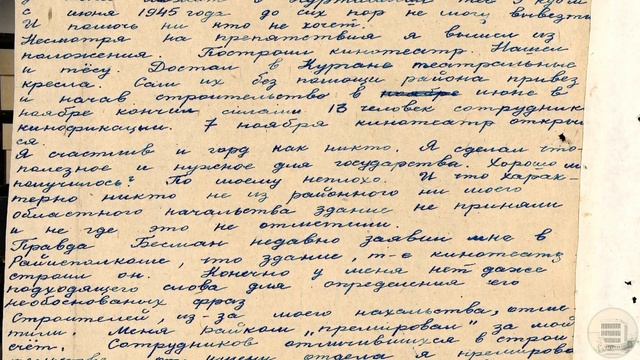 с июня 1945 года до сих пор не могу вывезти
И помочь ни кто не хочет.
Несмотря на препятствия я вышел из
положения. Построил кинотеатр. Нашел
и тёсу. Достал в Кургане театральные
кресла. Сам их без помощи района привез
и начав строительство в июне в
ноябре кончил силами 13 человек сотрудник
кинофикации. 7 ноября кинотеатр открыл
ся.
Я счастлив и горд как никто. Я сделал что
полезное и нужное для государства. Хорошо ли
получилось? По моему неплохо. И что харак-
терно никто не из районного ни моего
областного начальства здание не приняли
и не где это не отметили.
Правда Бесман недавно заявил мне в
Райисполкоме, что здание, т-е кинотеатр
строил он. Конечно у меня нет даже
подходящего слова для определения его
необоснованых фраз
Строителей, из-за моего нахальства, отме
тили. Меня райком „премировал" за мой
счёт. Сотрудников отличившихся в строи
отдела я премирова